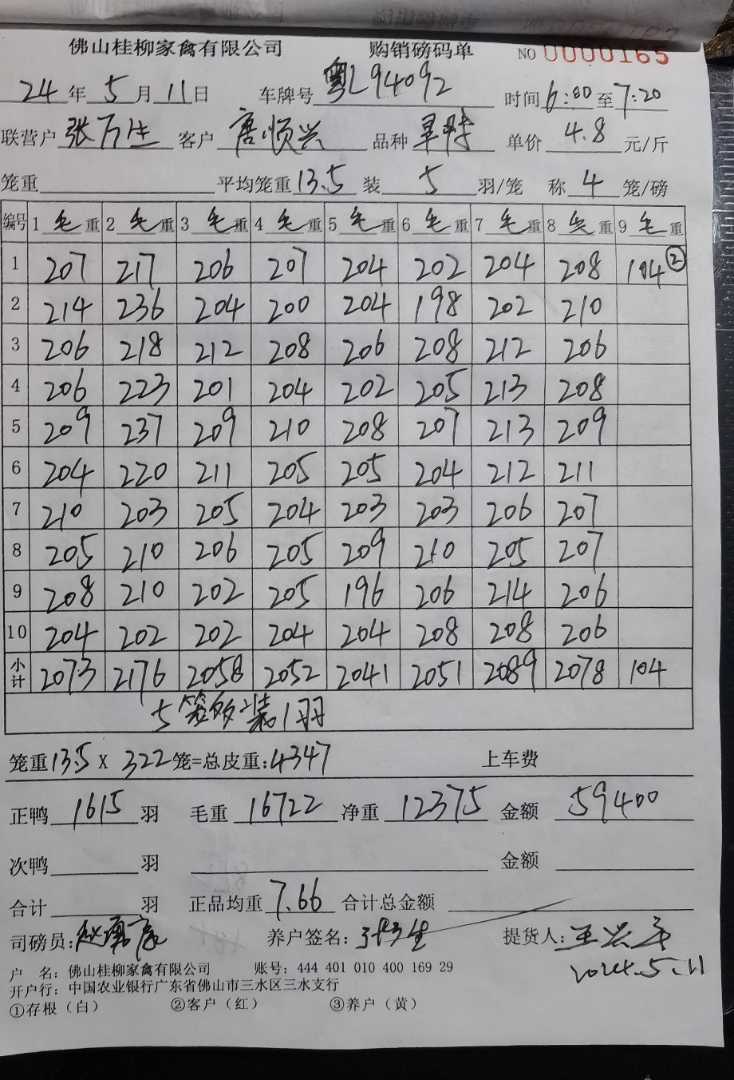 佛山桂柳家禽有限公司 购销磅码单 NO 0000165
24年5月11日 车牌号 粤L94092 时间6:00至7:20
联营户 张万生 客户 唐顺兴 品种 单价 4.8 元/斤
笼重 平均笼重13.5装 5 羽/笼 称 4 笼/磅
编号 1毛重 2毛重 3毛重 4毛重 5毛重 6毛重 7毛重 8毛重 9毛重
1 207 217 206 207 204 202 204 208 104②
2 214 236 204 200 204 198 202 210
3 206 218 212 208 206 208 212 206
4 206 223 201 204 202 205 213 208
5 209 237 209 210 208 207 213 209
6 204 220 211 205 205 204 212 211
7 210 203 205 204 203 203 206 207
8 205 210 206 205 209 210 205 207
9 208 210 202 205 196 206 214 206
10 204 202 202 204 204 208 208 206
小计 2073 2176 2058 2052 2041 2051 2089 2078 104
5笼多装1羽
笼重13.5 X 322笼=总皮重:4347 上车费
正鸭 1615 羽 毛重 16722 净重 12375 金额 59400
次鸭 羽 金额
合计 羽 正品均重 7.66 合计总金额
司磅员: 养户签名: 提货人:
2024.5.11
户 名: 佛山桂柳家禽有限公司 账号: 444 401 010 400 169 29
开户行: 中国农业银行广东省佛山市三水区三水支行
①存根(白) ②客户(红) ③养户(黄)